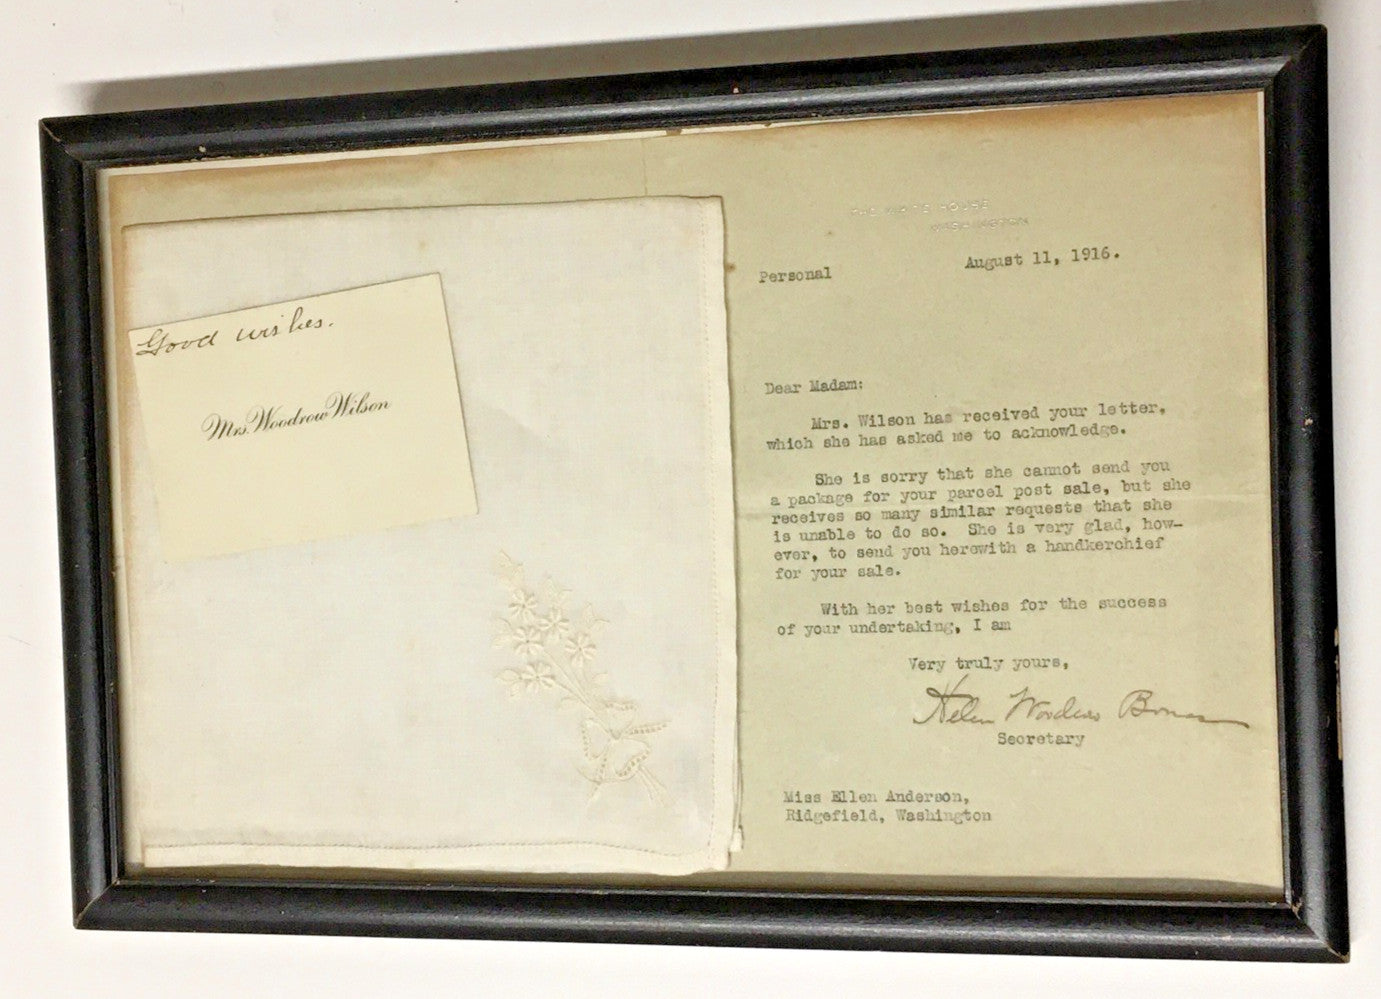 Good wishes.
Mrs. Woodrow Wilson
THE WHITE HOUSE
WASHINGTON
August 11, 1916.
Personal
Dear Madam:
Mrs. Wilson has received your letter,
which she has asked me to acknowledge.
She is sorry that she cannot send you
a package for your parcel post sale, but she
receives so many similar requests that she
is unable to do so. She is very glad, how-
ever, to send you herewith a handkerchief
for your sale.
With her best wishes for the success
of your undertaking, I am
Very truly yours,
Helen Woodrow Bones
Secretary
Miss Ellen Anderson,
Ridgefield, Washington